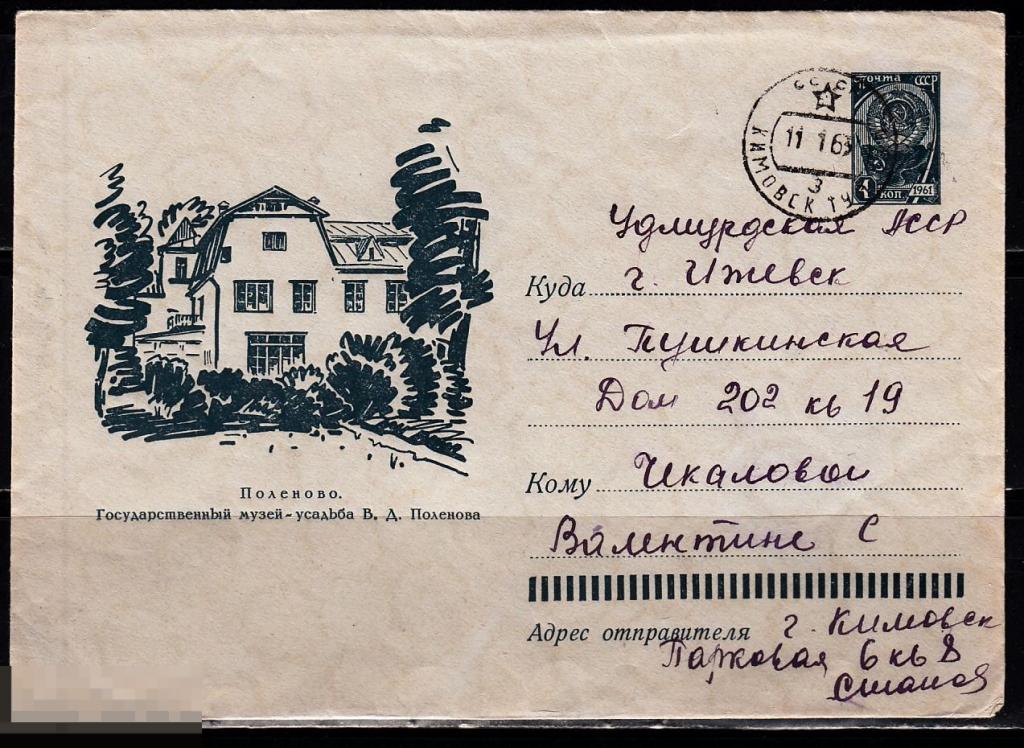 почта СССР
11 1 63
3
КИМОВСК ТУ
4 КОП. 1961
Удмурдская АССР
Куда г. Ижевск
Ул. Пушкинская
Дом 202 кв 19
Кому Чкаловой
Валентине С
Поленово.
Государственный музей-усадьба В. Д. Поленова
Адрес отправителя г. Кимовск
Парковая 6 кв 8